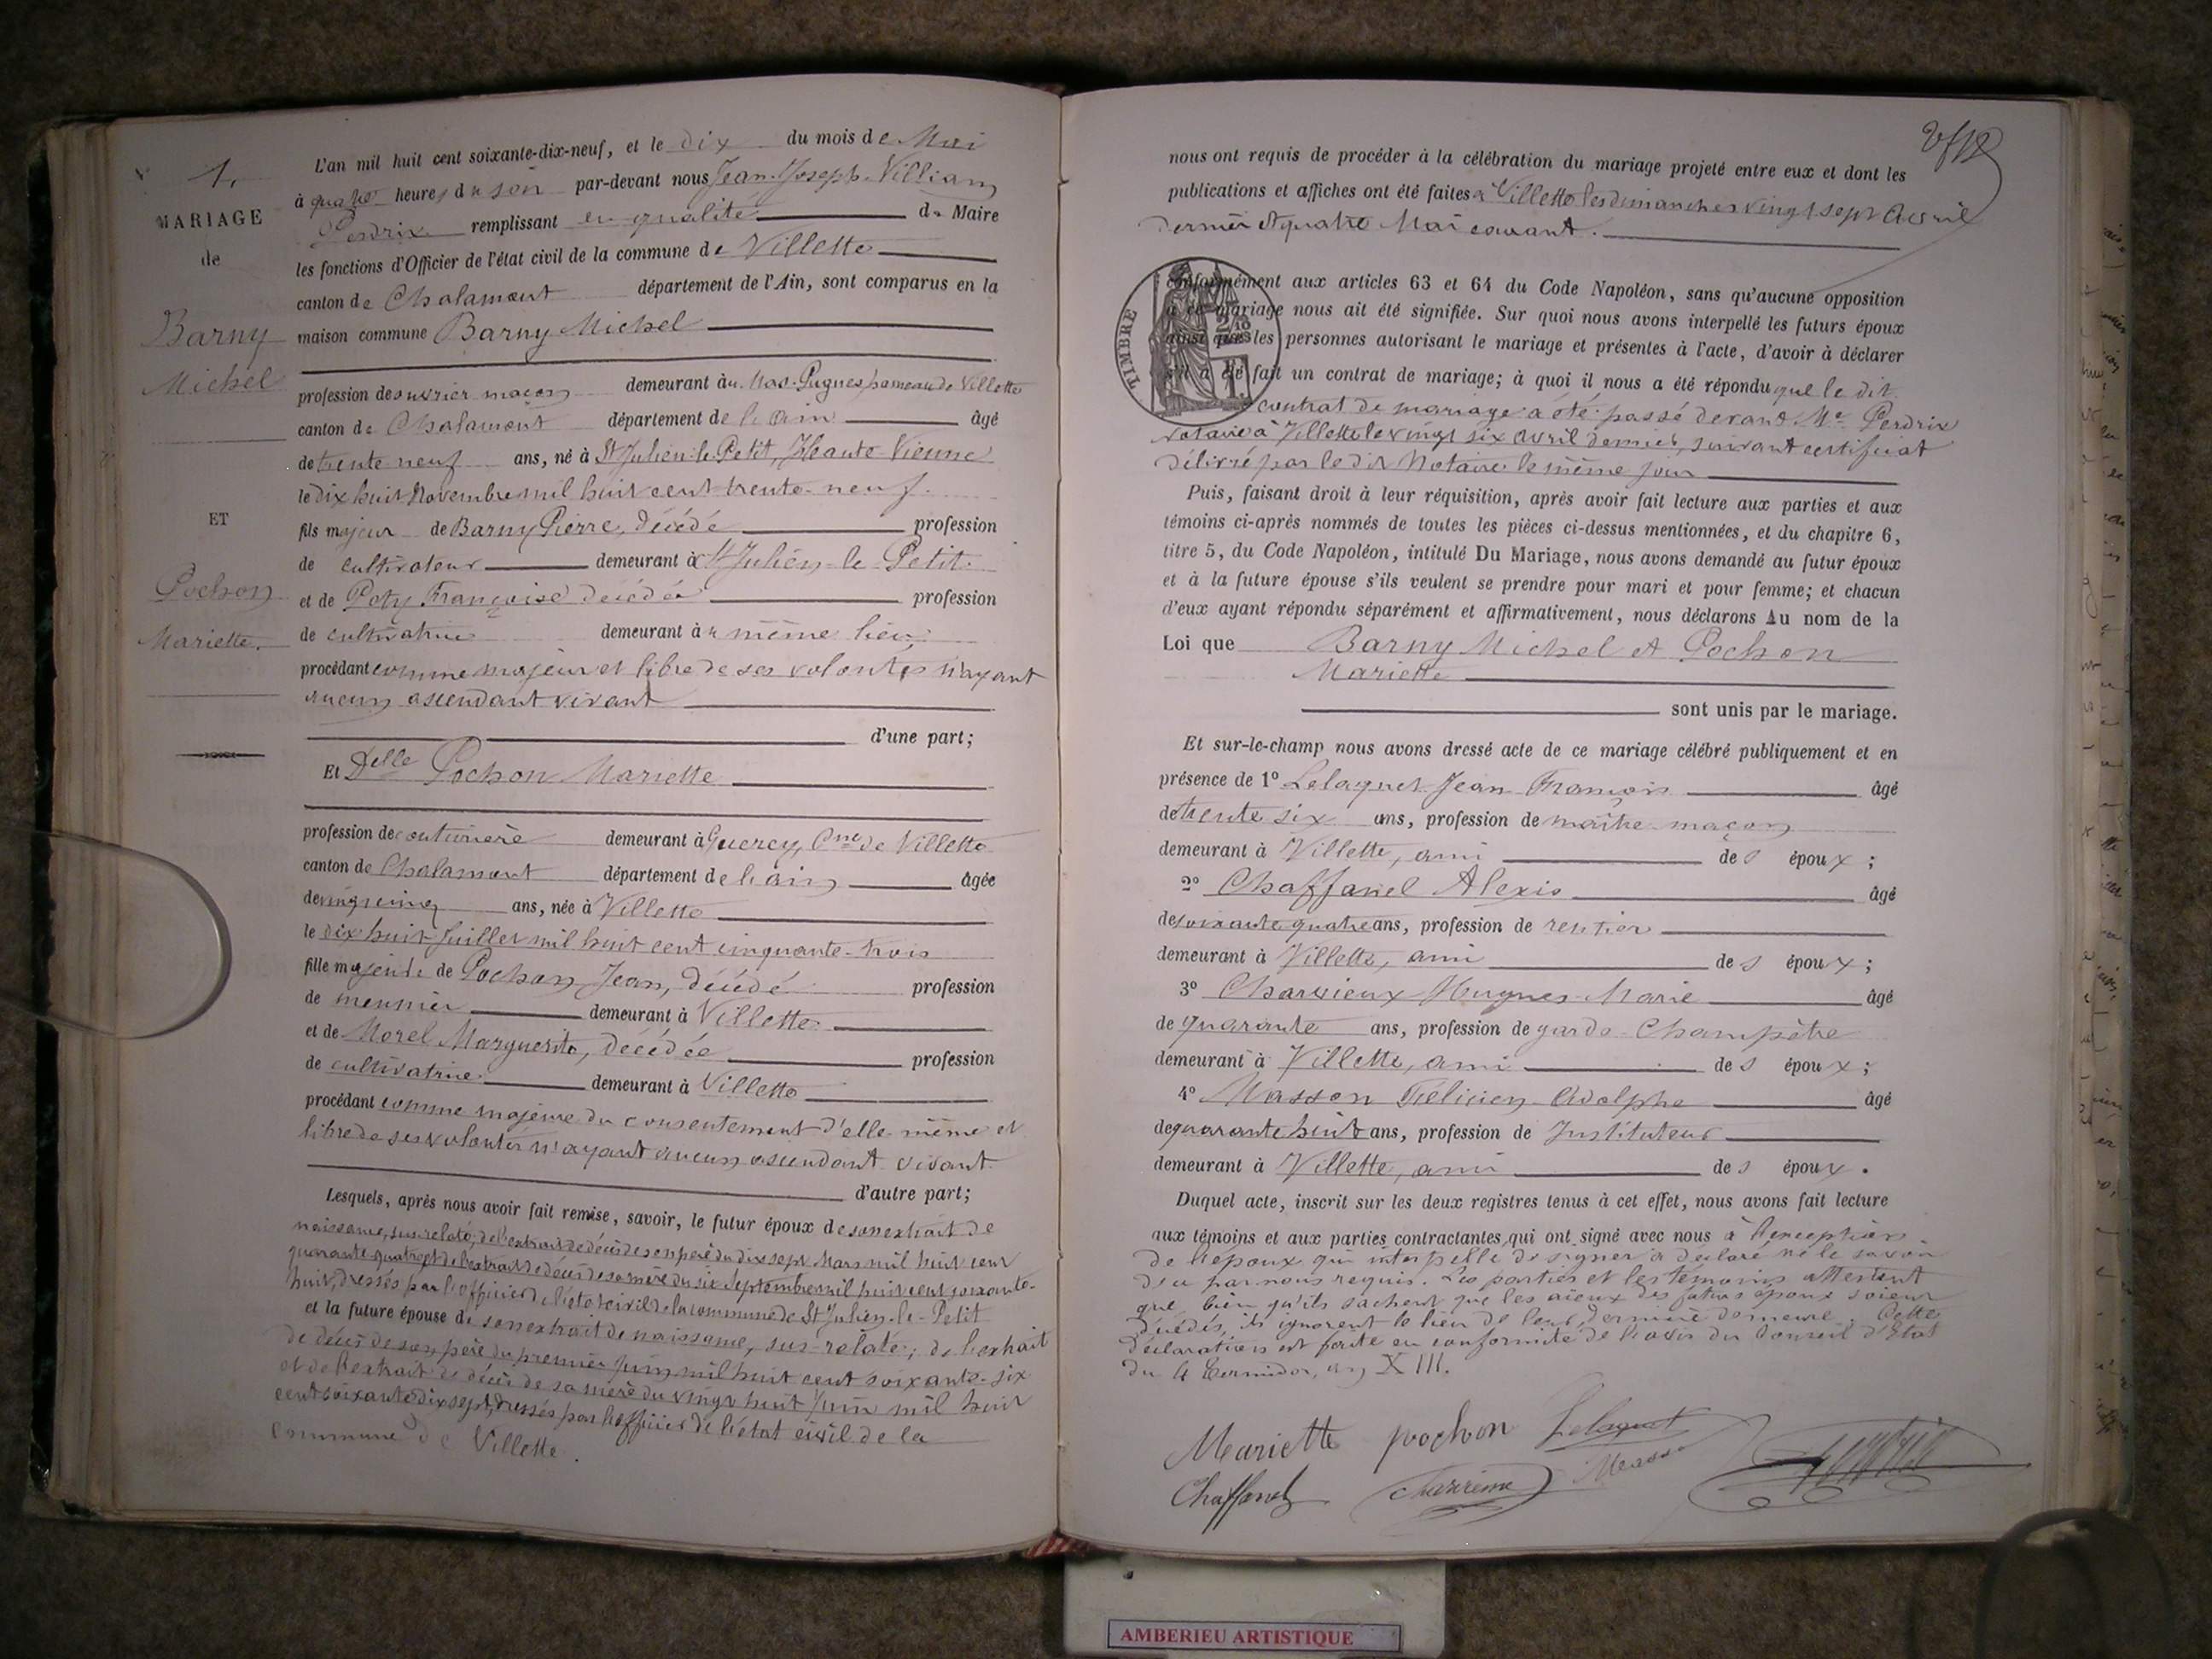 N° 1,
MARIAGE
de
Barny
Michel
ET
Pochon
Mariette.
L'an mil huit cent soixante-dix-neuf, et le dix du mois de Mai
à quatre heures du soir par-devant nous Jean-Joseph-Villiam
Perdrix remplissant en qualité de Maire
les fonctions d'Officier de l'état civil de la commune de Villette
canton de Chalamont département de l'Ain, sont comparus en la
maison commune Barny Michel
profession de ouvrier maçon demeurant au Mas-Pugues hameau de Villette
canton de Chalamont département de l'ain âgé
de trente neuf ans, né à St Julien-le-Petit, Haute Vienne
le dix huit Novembre mil huit cent trente-neuf.
fils majeur de Barny Pierre, décédé profession
de cultivateur demeurant à St Julien-le-Petit.
et de Poty Françoise décédée profession
de cultivatrice demeurant au même lieu
procédant comme majeur et libre de ses volontés n'ayant
aucun ascendant vivant
d'une part;
Et Delle Pochon Mariette
profession de couturière demeurant à Guercy, Cne de Villette
canton de Chalamont département de l'ain âgée
de vingt cinq ans, née à Villette
le dix huit Juillet mil huit cent cinquante-trois
fille majeure de Pochon Jean, décédé profession
de meunier demeurant à Villette
et de Morel Marguerite, décédée profession
de cultivatrice demeurant à Villette
procédant comme majeure du consentement d'elle-même et
libre de ses volontés n'ayant aucun ascendant vivant.
d'autre part;
Lesquels, après nous avoir fait remise, savoir, le futur époux de son extrait de
naissance, sus-relaté; de l'extrait de décès de son père du dix sept Mars mil huit cent
quarante-quatre et de l'extrait de décès de sa mère du six Septembre mil huit cent soixante-
huit, dressés par l'officier de l'état civil de la commune de St Julien-le-Petit
et la future épouse de son extrait de naissance, sus-relaté; de l'extrait
de décès de son père du premier Juin mil huit cent soixante-six
et de l'extrait de décès de sa mère du vingt huit Juin mil huit
cent soixante dix sept, dressés par l'officier de l'état civil de la
commune de Villette.
nous ont requis de procéder à la célébration du mariage projeté entre eux et dont les
publications et affiches ont été faites à Villette les dimanches vingt sept Avril
dernier et quatre Mai courant.
TIMBRE
conformément aux articles 63 et 64 du Code Napoléon, sans qu'aucune opposition
à ce mariage nous ait été signifiée. Sur quoi nous avons interpellé les futurs époux
ainsi que les personnes autorisant le mariage et présentes à l'acte, d'avoir à déclarer
s'il a été fait un contrat de mariage; à quoi il nous a été répondu que le dit
contrat de mariage a été passé devant Me Perdrix
notaire à Villette le vingt six avril dernier, suivant certificat
délivré par le dit Notaire le même jour
Puis, faisant droit à leur réquisition, après avoir fait lecture aux parties et aux
témoins ci-après nommés de toutes les pièces ci-dessus mentionnées, et du chapitre 6,
titre 5, du Code Napoléon, intitulé Du Mariage, nous avons demandé au futur époux
et à la future épouse s'ils veulent se prendre pour mari et pour femme; et chacun
d'eux ayant répondu séparément et affirmativement, nous déclarons Au nom de la
Loi que Barny Michel et Pochon
Mariette
sont unis par le mariage.
Et sur-le-champ nous avons dressé acte de ce mariage célébré publiquement et en
présence de 1° Lelaquet Jean François âgé
de trente six ans, profession de maître maçon
demeurant à Villette, ami des époux;
2° Chaffanel Alexis âgé
de soixante quatre ans, profession de rentier
demeurant à Villette, ami des époux;
3° Charvieux Hugues-Marie âgé
de quarante ans, profession de garde-Champêtre
demeurant à Villette, ami des époux;
4° Masson Félicien-Adolphe âgé
de quarante huit ans, profession de Instituteur
demeurant à Villette, ami des époux.
Duquel acte, inscrit sur les deux registres tenus à cet effet, nous avons fait lecture
aux témoins et aux parties contractantes, qui ont signé avec nous à l'exception
de l'époux qui interpellé de signer a déclaré ne le savoir
de ce par nous requis. Les parties et les témoins attestent
que, bien qu'ils sachent que les aïeux des futurs époux soient
décédés, ils ignorent le lieu de leur dernière demeure. Cette
déclaration est faite en conformité de l'avis du Conseil d'Etat
du 4 termidor, an XIII.
Mariette pochon Lelaquet
Chaffanel Charvieux Masso
AMBERIEU ARTISTIQUE